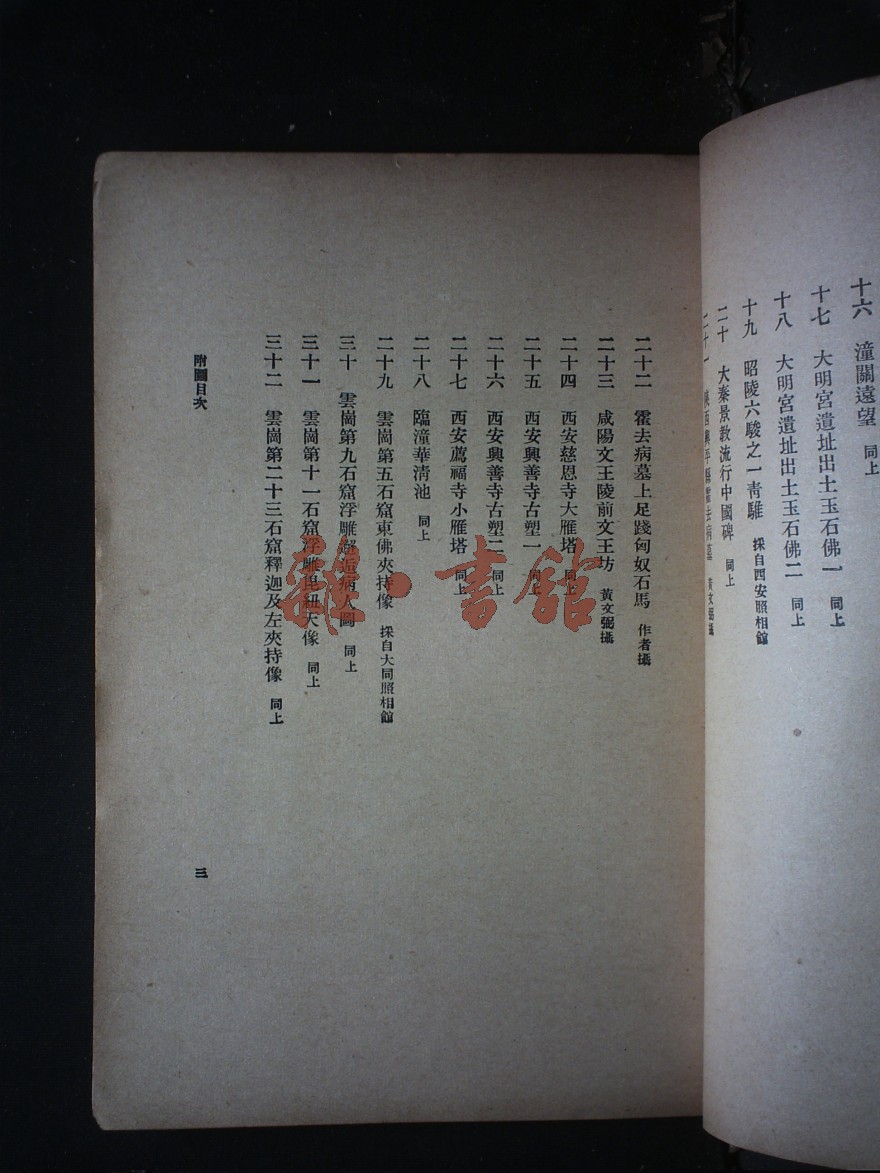 十六 潼關遠望 同上
十七 大明宮遺址出土玉石佛一 同上
十八 大明宮遺址出土玉石佛二 同上
十九 昭陵六駿之一靑騅 採自西安照相館
二十 大秦景敎流行中國碑 同上
二十一 陝西興平縣霍去病墓 黃文弼攝
二十二 霍去病墓上足踐匈奴石馬 作者攝
二十三 咸陽文王陵前文王坊 黃文弼攝
二十四 西安慈恩寺大雁塔 同上
二十五 西安興善寺古塑一 同上
二十六 西安興善寺古塑二 同上
二十七 西安薦福寺小雁塔 同上
二十八 臨潼華淸池 同上
二十九 雲崗第五石窟東佛夾持像 採自大同照相館
三十 雲崗第九石窟浮雕邂逅病人圖 同上
三十一 雲崗第十一石窟浮雕毘紐天像 同上
三十二 雲崗第二十三石窟釋迦及左夾持像 同上
附圖目次
三
雜·書館